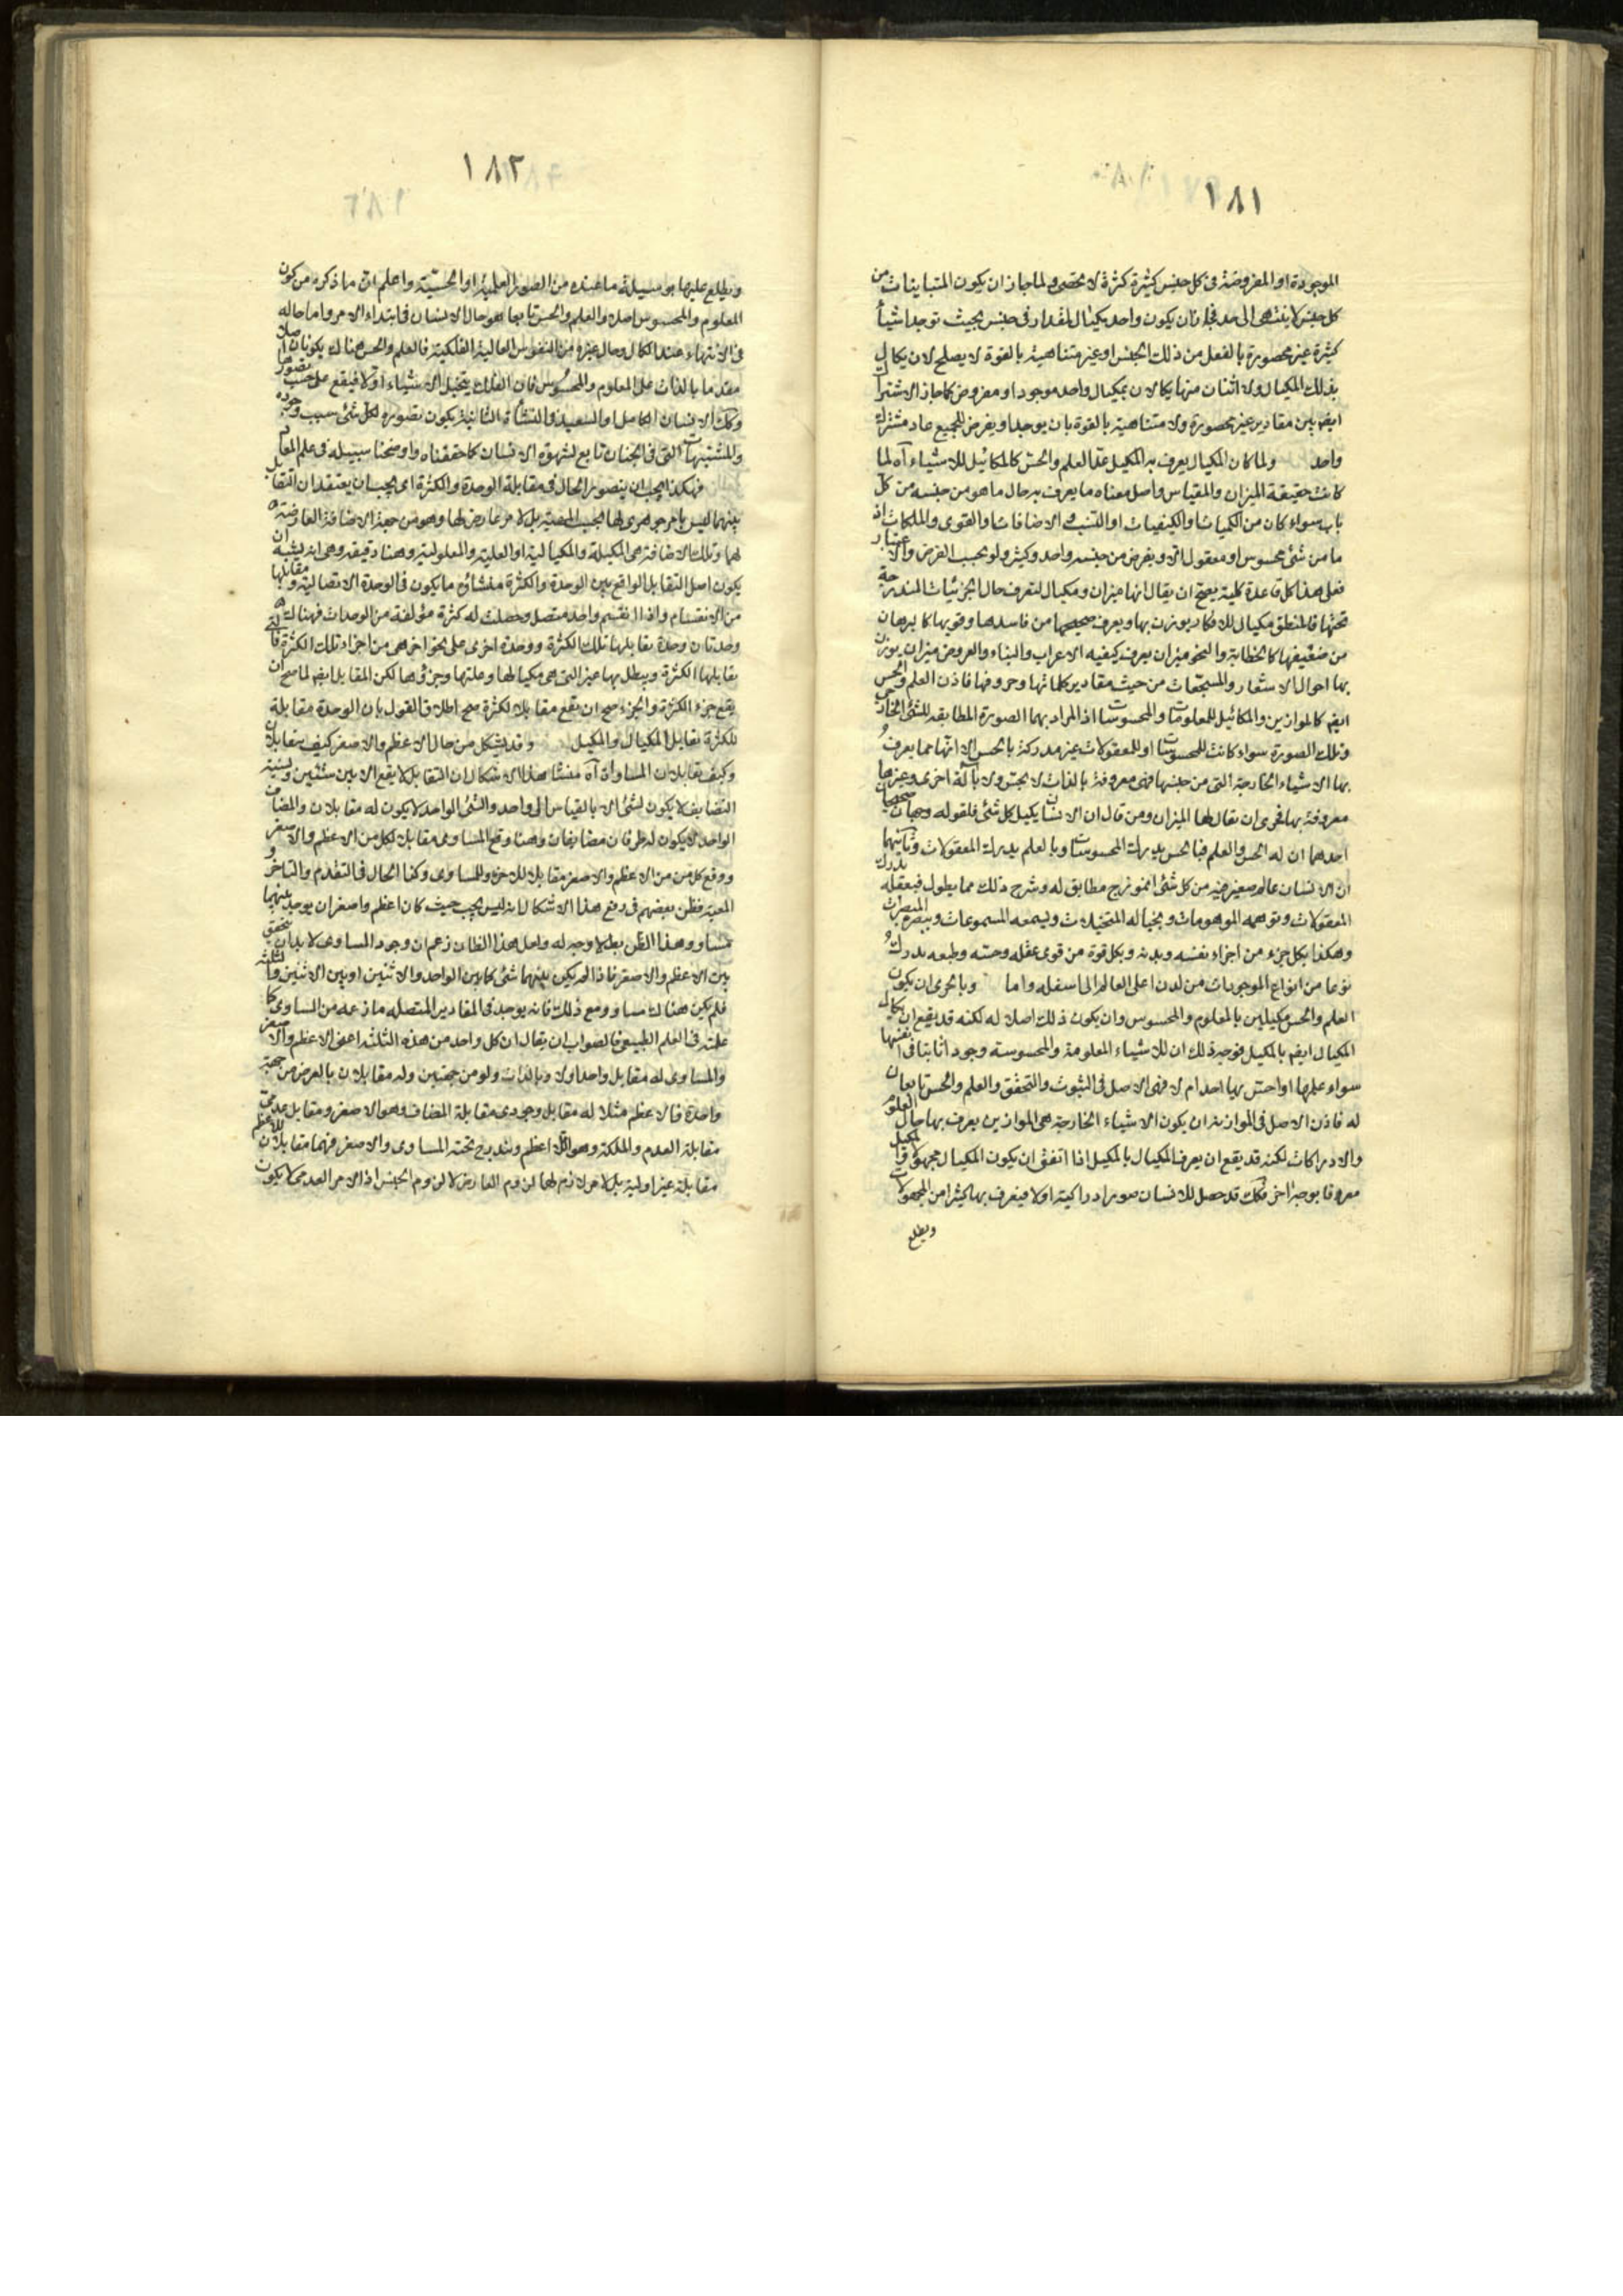 ١٨١
الموجودة او المفروضة فى كل جنس كثيرة كثرة لا تحصى ولما جاز ان يكون المتباينات من
كل جنس لا ينتهى الى حد فجاز ان يكون واحد مكيال لمقدار فى جنس بحيث توجد اشياء
كثيرة غير محصورة بالفعل من ذلك الجنس او غير متناهية بالقوة لا يصلح لان يكال
بذلك المكيال ولا اثنان منها يكالان بمكيال واحد موجود او مفروض كما جاز الاشتراك
ايضم بين مقادير غير محصورة ولا متناهية بالقوة بان يوجد او يفرض للجميع عاد مشترك
واحد ولما كان المكيال يعرف به المكيل عدّ العلم والحس كالمكائيل للاشياء آه لما
كانت حقيقة الميزان والمقياس واصل معناه ما يعرف به حال ما هو من جنسه من كل
باب سواء كان من الكميات او الكيفيات او النسب والاضافات او القوى والملكات اذ
ما من شئ محسوس او معقول الا ويفرض من جنسه واحد وكثير ولو بحسب الفرض والاعتبار
فعلى هذا كل قاعدة كلية يصح ان يقال انها ميزان ومكيال لتعرف حال الجزئيات المندرجة
تحتها فالمنطق مكيال للافكار يوزن بها ويعرف صحيحها من فاسدها وقويها كالبرهان
من ضعيفها كالخطابة والنحو ميزان يعرف كيفيه الاعراب والبناء والعروض ميزان يوزن
بها احوال الاشعار والمسجعات من حيث مقادير كلماتها وحروفها فاذن العلم والحس
ايضم كالموازين والمكائيل للمعلومات والمحسوسات اذ المراد بهما الصورة المطابقه للشئ الخارجى
وتلك الصورة سواء كانت للمحسوسات او للمعقولات غير مدركة بالحس الا انها مما يعرف
بها الاشياء الخارجة التى من جنسها فهى معروفة بالذات لا بحس ولا بآلة اخرى وغيرها
معروفة بها فحرى ان يقال لها الميزان ومن قال ان الانسان يكيل كل شئ فلقوله وجهان صحيحان
احدهما ان له الحس والعلم فبالحس يدرك المحسوسات وبالعلم يدرك المعقولات وثانيهما
ان الانسان عالم صغير فيه من كل شئ انموزج مطابق له وشرح ذلك مما يطول فبعقله يدرك
المعقولات وتوهمه الموهومات وبخياله المتخيلات وبسمعه المسموعات وببصره المبصرات
وهكذا بكل جزء من اجزاء نفسه وبدنه وبكل قوة من قوى عقله وحسه وطبعه يدرك
نوعا من انواع الموجودات من لدن اعلى العالم الى اسفله واما وبالحرى ان يكون
العلم والحس مكيلين بالمعلوم والمحسوس وان يكون ذلك اصلا له لكنه قد يقع ان يكال
المكيال ايضم بالمكيل فوجه ذلك ان للاشياء المعلومة والمحسوسة وجودا ثابتا فى انفسها
سواء علمها او احس بها احد ام لا فهى الاصل فى الثبوت والتحقق والعلم والحس تابعان
له فاذن الاصل فى الموازنه ان يكون الاشياء الخارجة هى الموازين يعرف بها حال العلوم
والادراكات لكنه قد يقع ان يعرف المكيال بالمكيل اذا اتفق ان يكون المكيال مجهولا والمكيل
معروفا بوجه اخر فكك قد حصل للانسان صور ادراكية اولا فيعرف بها كثيرا من المجهولات
ويطلع
١٨٢
ويطلع عليها بوسيلة ما عنده من الصور العلمية او الحسية واعلم ان ما ذكره من كون
المعلوم والمحسوس اصلا والعلم والحس تابعا هو حال الانسان فى ابتداء الامر واما حاله
فى الانتهاء عند الكمال وحال غيره من النفوس العالية الفلكية فالعلم والحس هناك يكونان اصلا
مقدما بالذات على المعلوم والمحسوس فان الفلك يتخيل الاشياء اولا فيقع على حسب تصورها
وكك الانسان الكامل والسعيد فى النشأة الثانية يكون تصوره لكل شئ سبب وجوده
والمشتهيات التى فى الجنان تابع لشهوة الانسان كما حققناه واوضحنا سبيله فى علم المعاد
فهكذا يجب ان يتصور الحال فى مقابلة الوحدة والكثرة اى يجب ان يعتقد ان التقابل
بينهما ليس بامر جوهرى لها بحسب المهية بل لامر عارض لها وهو من جهة الاضافة العارضة
لهما وتلك الاضافة هى المكيلة والمكيالية او العلية والمعلولية وهنا دقيقه وهى انه يشبه ان
يكون اصل التقابل الواقع بين الوحدة والكثرة منشائه ما يكون فى الوحدة الاتصالية ومقابلها
من الانقسام واذا انقسم واحد متصل وحصلت له كثرة مؤلفة من الوحدات فهناك
وحدتان وحدة يقابلها تلك الكثرة ووحدة اخرى على نحو اخر هى من اجزاء تلك الكثرة
يقابلها الكثرة ويبطل بها غير التى هى مكيالها وعلتها وجزؤها لكن المقابل ايضم لما صح ان
يقع جزء الكثرة والجزء صح ان يقع مقابلا للكثرة صح اطلاق القول بان الوحدة مقابلة
للكثرة تقابل المكيال والمكيل وقد يشكل من حال الاعظم والاصغر كيف يتقابلان
وكيف يقابلان المساواة آه منشأ هذا الاشكال ان التقابل لا يقع الا بين شئين
التضايف لا يكون لشئ الا بالقياس الى واحد والشئ الواحد لا يكون له مقابلان والمضاف
الواحد لا يكون له طرفان مضايفان وهنا وقع المساوى مقابلا لكل من الاعظم والاصغر
ووقع كل من الاعظم والاصغر مقابلا للاخر وللمساوى وكذا الحال فى التقدم والتاخر و
المعية فظن بعضهم فى دفع هذا الاشكال انه ليس يجب حيث كان اعظم واصغر ان يوجد بينهما
مساو وهذا الظن بطل لا وجه له ولعل هذا الظان زعم ان وجود المساوى لا بد ان يتحقق
بين الاعظم والاصغر فاذا لم يكن بينهما شئ كما بين الواحد والاثنين او بين الاثنين والثلثه
فلم يكن هناك مساو ومع ذلك فانه يوجد فى المقادير المتصله ما زعمه من المساوى كما
علمته فى العلم الطبيعى فالصواب ان يقال ان كل واحد من هذه الثلثه اعنى الاعظم والاصغر
والمساوى له مقابل واحد اولا وبالذات ولو من جهتين وله مقابلان بالعرض من جهة
واحدة فالاعظم مثلا له مقابل وجودى مقابلة المضاف وهو الاصغر ومقابل عدمى
مقابلة العدم والملكة وهو اللا اعظم ويندرج تحته المساوى والاصغر فهما مقابلان للاعظم
مقابلة غير اولية بل لامر لازم لهما لزوم العارض لا لزوم الجنس اذ الامر العدمى لا يكون